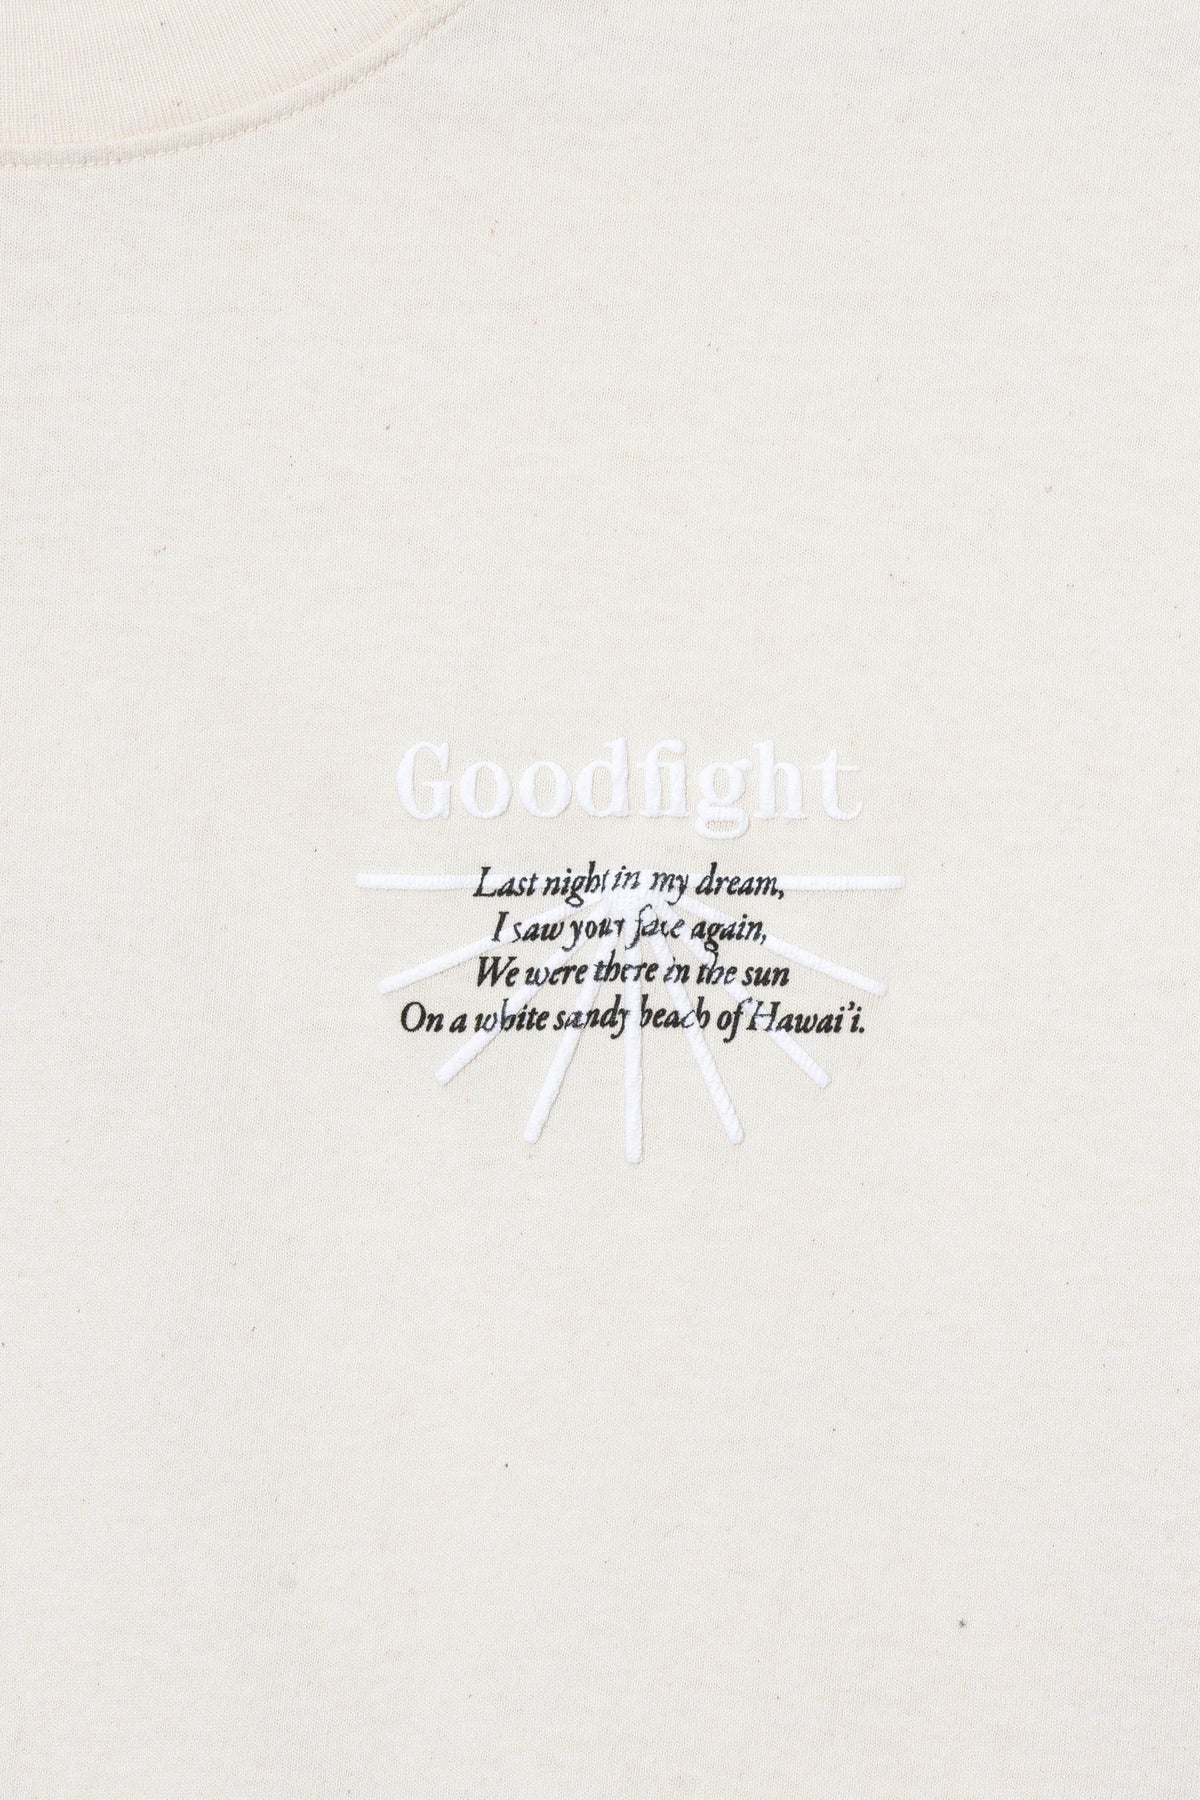 Goodfight
Last night in my dream,
I saw your face again,
We were there in the sun
On a white sandy beach of Hawai’i.